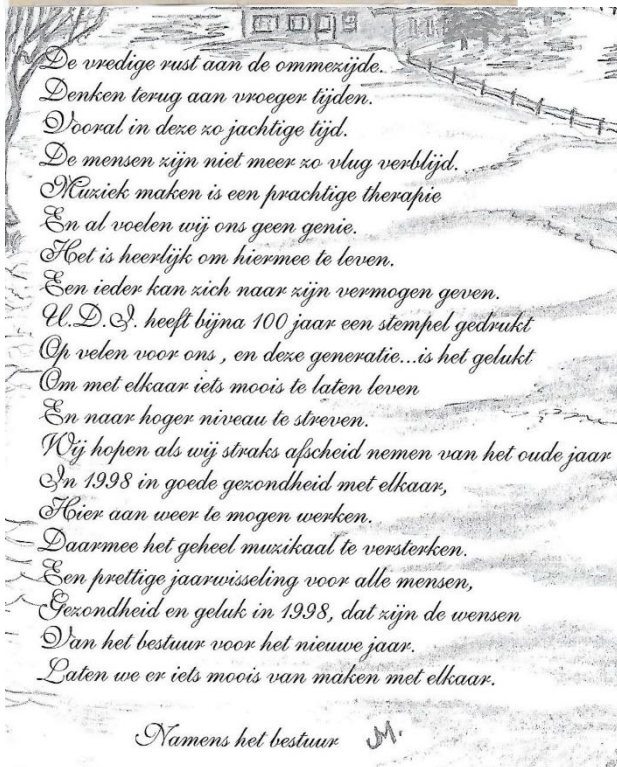 De vredige rust aan de ommezijde.
Denken terug aan vroeger tijden.
Vooral in deze zo jachtige tijd.
De mensen zijn niet meer zo vlug verblijd.
Muziek maken is een prachtige therapie
En al voelen wij ons geen genie.
Het is heerlijk om hiermee te leven.
Een ieder kan zich naar zijn vermogen geven.
U.D.I. heeft bijna 100 jaar een stempel gedrukt
Op velen voor ons , en deze generatie...is het gelukt
Om met elkaar iets moois te laten leven
En naar hoger niveau te streven.
Wij hopen als wij straks afscheid nemen van het oude jaar
In 1998 in goede gezondheid met elkaar,
Hier aan weer te mogen werken.
Daarmee het geheel muzikaal te versterken.
Een prettige jaarwisseling voor alle mensen,
Gezondheid en geluk in 1998, dat zijn de wensen
Van het bestuur voor het nieuwe jaar.
Laten we er iets moois van maken met elkaar.
Namens het bestuur M.